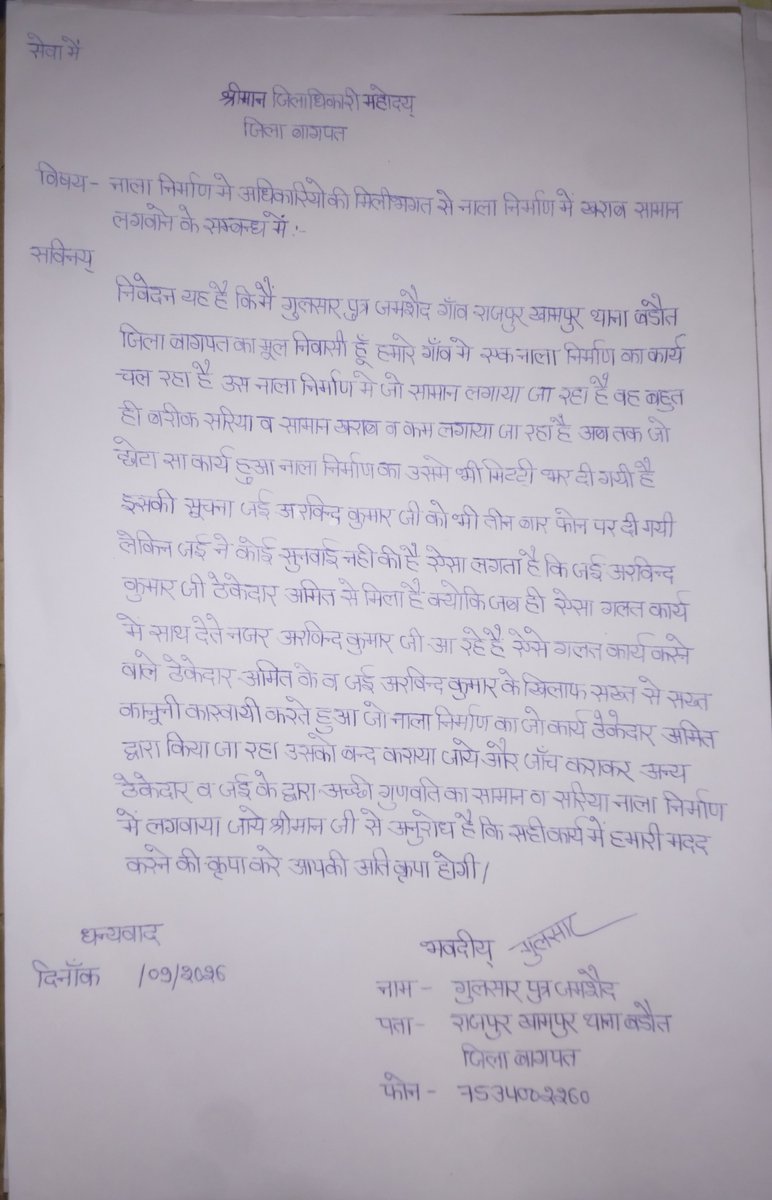 सेवा में
श्रीमान जिलाधिकारी महोदय्
जिला बागपत
विषय- नाला निर्माण मे अधिकारियो की मिलीभगत से नाला निर्माण में खराब सामान
लगवाने के सम्बन्ध में :-
सविनय्
निवेदन यह है कि मैं गुलसार पुत्र जमशैद गाँव राजपुर खामपुर थाना बडौत
जिला बागपत का मूल निवासी हूँ हमारे गाँव मे एक नाला निर्माण का कार्य
चल रहा है उस नाला निर्माण मे जो सामान लगाया जा रहा है वह बहुत
ही बारीक सरिया व सामान खराब व कम लगाया जा रहा है अब तक जो
छोटा सा कार्य हुआ नाला निर्माण का उसमे भी मिटटी भर दी गयी है
इसकी सूचना जई अरविन्द कुमार जी को भी तीन बार फोन पर दी गयी
लेकिन जई ने कोई सुनवाई नही की है ऐसा लगता है कि जई अरविन्द
कुमार जी ठेकेदार अमित से मिला है क्योकि जब ही ऐसा गलत कार्य
मे साथ देते नजर अरविन्द कुमार जी आ रहे है ऐसे गलत कार्य करने
वाले ठेकेदार अमित के व जई अरविन्द कुमार के खिलाफ सख्त से सख्त
कानूनी कारवायी करते हुआ जो नाला निर्माण का जो कार्य ठेकेदार अमित
द्वारा किया जा रहा उसको बन्द कराया जाये और जाँच कराकर अन्य
ठेकेदार व जई के द्वारा अच्छी गुणवति का सामान व सरिया नाला निर्माण
में लगवाया जाये श्रीमान जी से अनुरोध है कि सही कार्य में हमारी मदद
करने की कृपा करे आपकी अति कृपा होगी।
धन्यवाद
भवदीय् गुलसार
दिनाँक /09/2026
नाम - गुलसार पुत्र जमशैद
पता- राजपुर खामपुर थाना बडौत
जिला बागपत
फोन - 7534002260